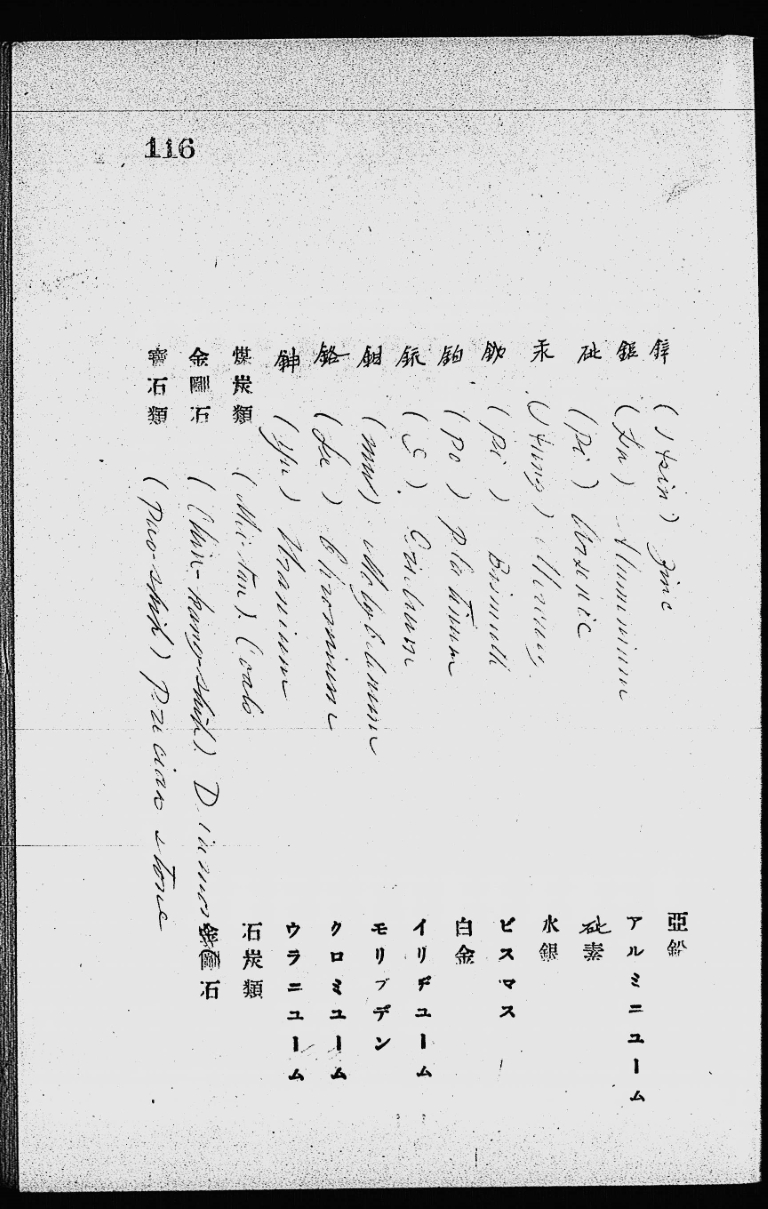 116
鋅 (Hsin) Zinc 亞鉛
鋁 (Lu) Aluminium アルミニューム
砒 (Pi) Arsenic 砒素
汞 水銀
鈹 (Pi) Bismuth ビスマス
鉑 (Po) Platinum 白金
銥 イリヂューム
鉬 (Mu) Molybdenum モリブデン
鉻 (Lu) Chromium クロミユーム
鈾 (Yu) Uranium ウラニユーム
煤炭類 (Mei-tan) Coals 石炭類
金剛石 (Chin-kang-shih) 金剛石
寶石類 (Pao-shih) Precious stone